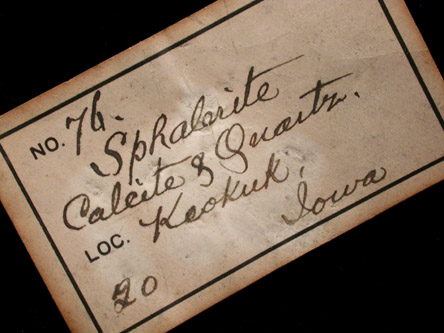 NO. 76.
Sphalerite
Calcite & Quartz.
LOC. Keokuk,
Iowa
20